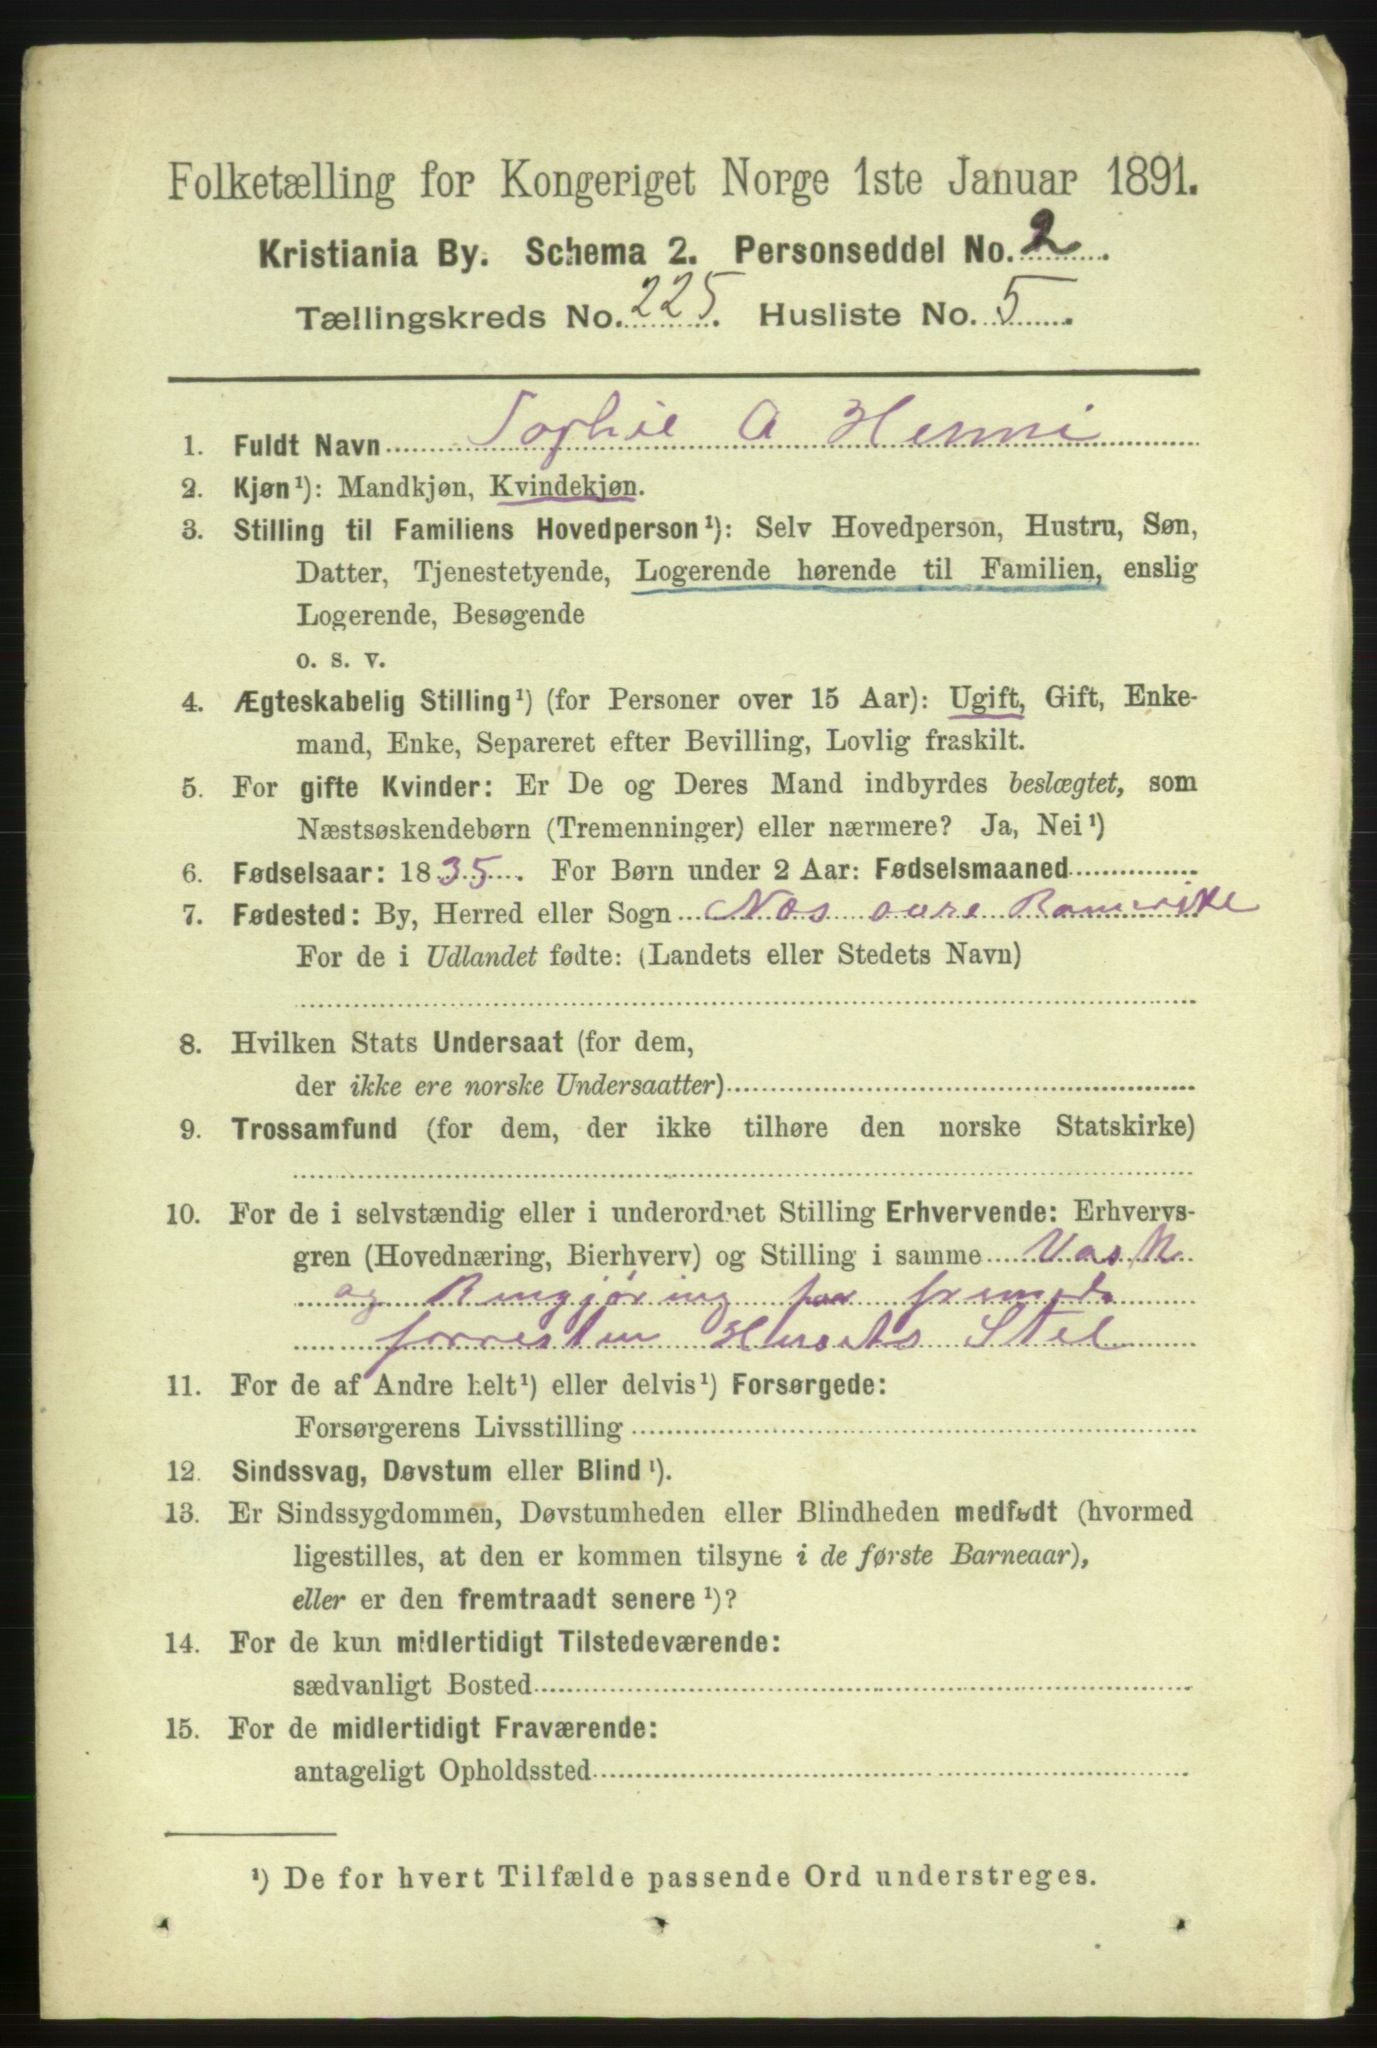 Folketælling for Kongeriget Norge 1ste Januar 1891.
Kristiania By. Schema 2. Personseddel No. 2.
Tællingskreds No. 225. Husliste No. 5.
1. Fuldt Navn Sophie A Henni
2. Kjøn¹): Mandkjøn, Kvindekjøn.
3. Stilling til Familiens Hovedperson¹): Selv Hovedperson, Hustru, Søn,
Datter, Tjenestetyende, Logerende hørende til Familien, enslig
Logerende, Besøgende
o. s. v.
4. Ægteskabelig Stilling¹) (for Personer over 15 Aar): Ugift, Gift, Enke-
mand, Enke, Separeret efter Bevilling, Lovlig fraskilt.
5. For gifte Kvinder: Er De og Deres Mand indbyrdes beslægtet, som
Næstsøskendebørn (Tremenninger) eller nærmere? Ja, Nei¹)
6. Fødselsaar: 1835. For Børn under 2 Aar: Fødselsmaaned
7. Fødested: By, Herred eller Sogn Næs øvre Romerike
For de i Udlandet fødte: (Landets eller Stedets Navn)
8. Hvilken Stats Undersaat (for dem,
der ikke ere norske Undersaatter)
9. Trossamfund (for dem, der ikke tilhøre den norske Statskirke)
10. For de i selvstændig eller i underordnet Stilling Erhvervende: Erhvervs-
gren (Hovednæring, Bierhverv) og Stilling i samme Vask
og Rengjøring
forresten Husets Stel
11. For de af Andre helt¹) eller delvis¹) Forsørgede:
Forsørgerens Livsstilling
12. Sindssvag, Døvstum eller Blind¹).
13. Er Sindssygdommen, Døvstumheden eller Blindheden medfødt (hvormed
ligestilles, at den er kommen tilsyne i de første Barneaar),
eller er den fremtraadt senere¹)?
14. For de kun midlertidigt Tilstedeværende:
sædvanligt Bosted
15. For de midlertidigt Fraværende:
antageligt Opholdssted
¹) De for hvert Tilfælde passende Ord understreges.